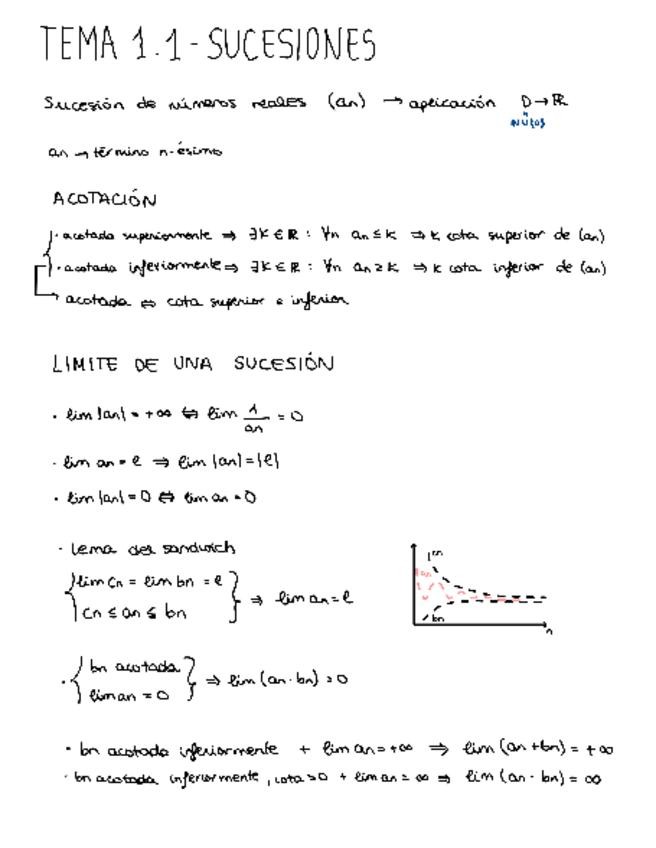 TEMA 1.1 - SUCESIONES
Sucesión de números reales (an) → aplicación D → ℝ
an → término n-ésimo
ACOTACIÓN
· acotada superiormente ⇒ ∃K ∈ ℝ : ∀n an ≤ K ⇒ K cota superior de (an)
· acotada inferiormente ⇒ ∃K ∈ ℝ : ∀n an ≥ K ⇒ K cota inferior de (an)
→ acotada ⇔ cota superior e inferior
LIMITE DE UNA SUCESIÓN
· lim |an| = +∞ ⇔ lim 1/an = 0
· lim an = l ⇒ lim |an| = |l|
· lim |an| = 0 ⇔ lim an = 0
· Lema del sandwich
{ lim cn = lim bn = l
cn ≤ an ≤ bn } ⇒ lim an = l
cn
an
bn
n
· { bn acotada
lim an = 0 } ⇒ lim (an · bn) = 0
· bn acotada inferiormente + lim an = +∞ ⇒ lim (an + bn) = +∞
· bn acotada inferiormente, cota > 0 + lim an = ∞ ⇒ lim (an · bn) = ∞